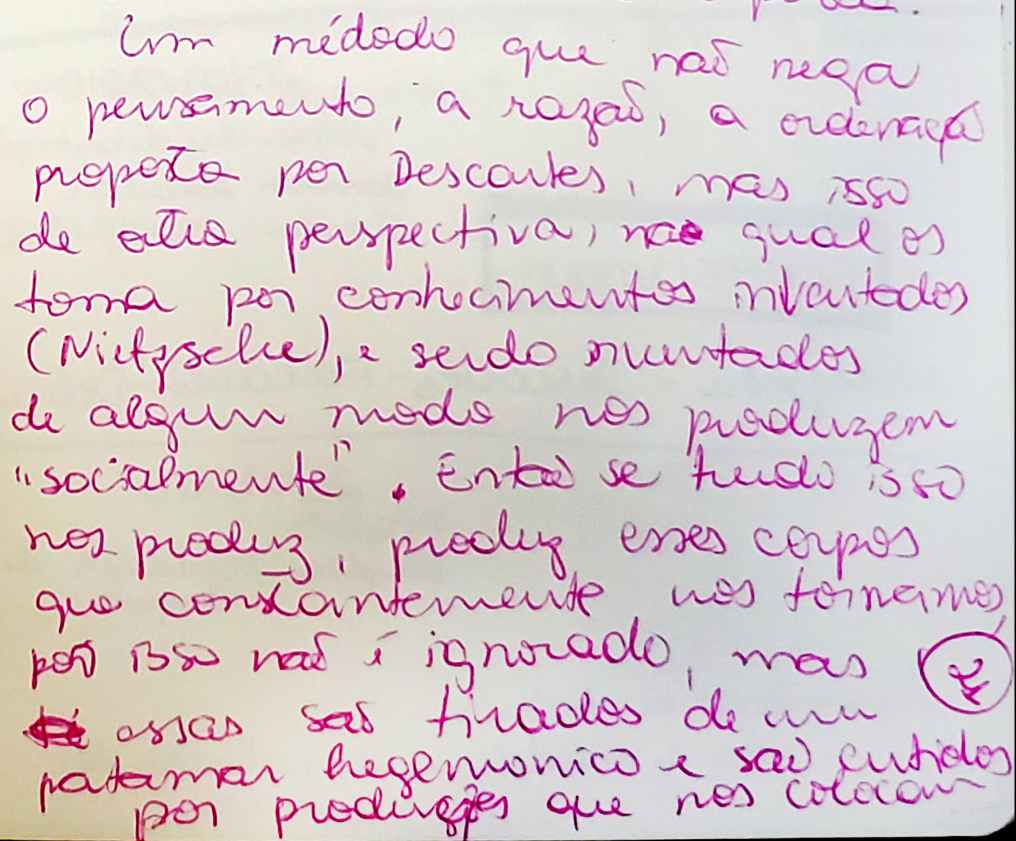 Um médodo que não nega
o pensamento, a razão, a ordenação
proposta por Descartes, mas isso
de outra perspectiva, na qual os
toma por conhecimentos inventados
(Nietzsche), e sendo inventados
de algum modo nos produzem
"socialmente". Então se tudo isso
nos produz, produz esses corpos
que constantemente nos tornamos,
por isso não é ignorado, mas
essas são tirados de um
patamar hegemonico e são
por produções que nos colocam